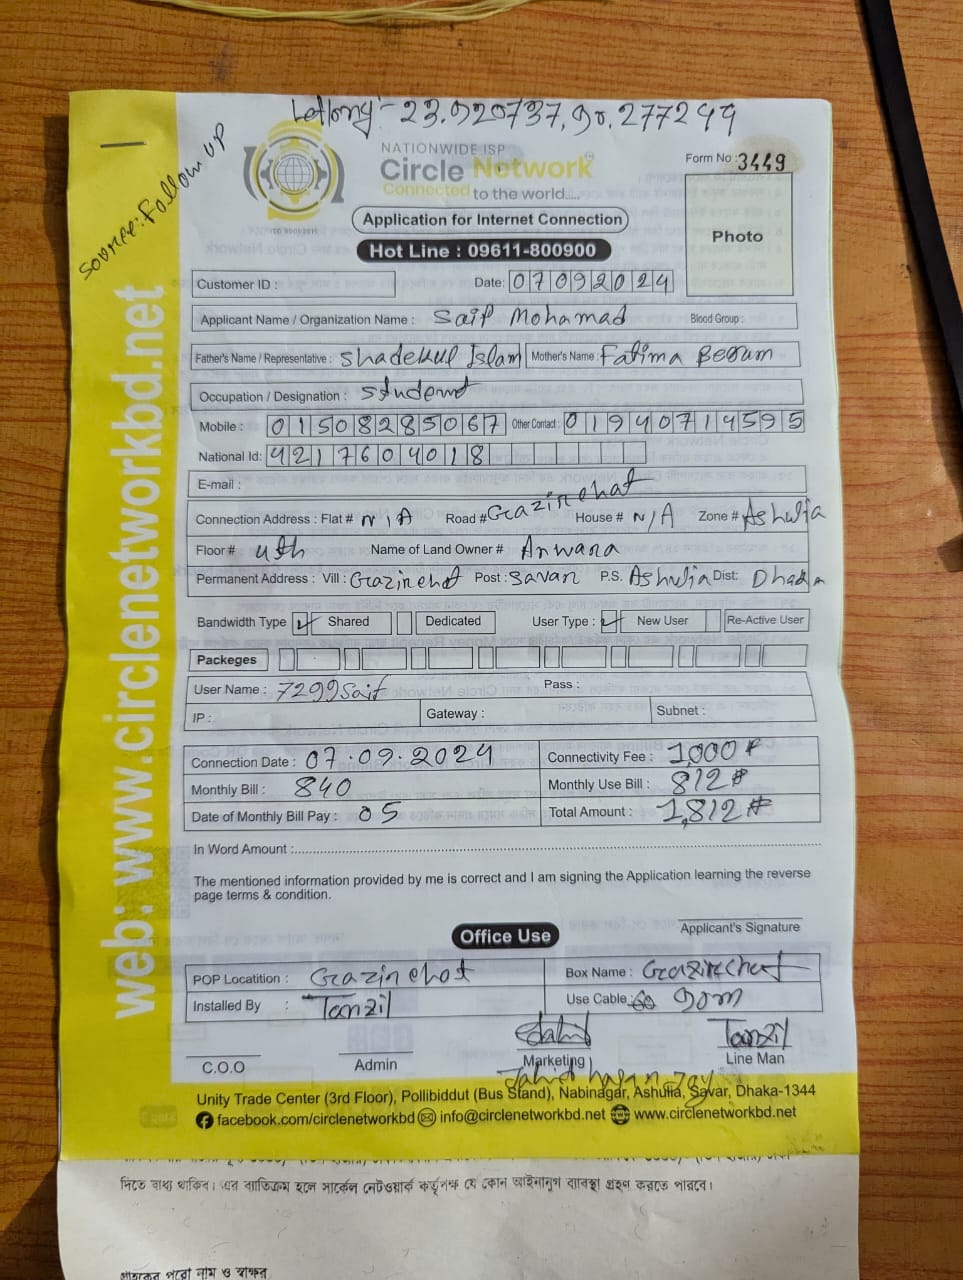 Latlong:- 23.920737, 90.277299
Source: Follow UP
NATIONWIDE ISP
Circle Network
Connected to the world.....
Form No : 3449
Application for Internet Connection
Hot Line : 09611-800900
Photo
Customer ID :
Date: 07092024
Applicant Name / Organization Name : Saif Mohamad Blood Group :
Father's Name / Representative : Shadekul Islam Mother's Name : Fatima Begum
Occupation / Designation : Student
Mobile : 01508285067 Other Contact : 01940714595
National Id: 4217604018
E-mail :
Connection Address : Flat # N/A Road # Gazirchat House # N/A Zone # Ashulia
Floor # 4th Name of Land Owner # Anwara
Permanent Address : Vill : Gazirchat Post : Savar P.S. Ashulia Dist: Dhaka
Bandwidth Type Shared Dedicated User Type : New User Re-Active User
Packeges
User Name : 7299Saif Pass :
IP : Gateway : Subnet :
Connection Date : 07.09.2024 Connectivity Fee : 1,000#
Monthly Bill : 840 Monthly Use Bill : 812#
Date of Monthly Bill Pay : 05 Total Amount : 1,812#
In Word Amount :
The mentioned information provided by me is correct and I am signing the Application learning the reverse
page terms & condition.
Applicant's Signature
Office Use
POP Locatition : Gazirchat Box Name : Gazirchat
Installed By : Tanzil Use Cable : 90m
Tanzil
C.O.O Admin Marketing Line Man
Jahid hasan Joy
Unity Trade Center (3rd Floor), Pollibiddut (Bus Stand), Nabinagar, Ashulia, Savar, Dhaka-1344
facebook.com/circlenetworkbd info@circlenetworkbd.net www.circlenetworkbd.net
web: www.circlenetworkbd.net
দিতে বাধ্য থাকিব। এর ব্যতিক্রম হলে সার্কেল নেটওয়ার্ক কর্তৃপক্ষ যে কোন আইনানুগ ব্যবস্থা গ্রহণ করতে পারবে।
গ্রাহকের পুরো নাম ও স্বাক্ষর